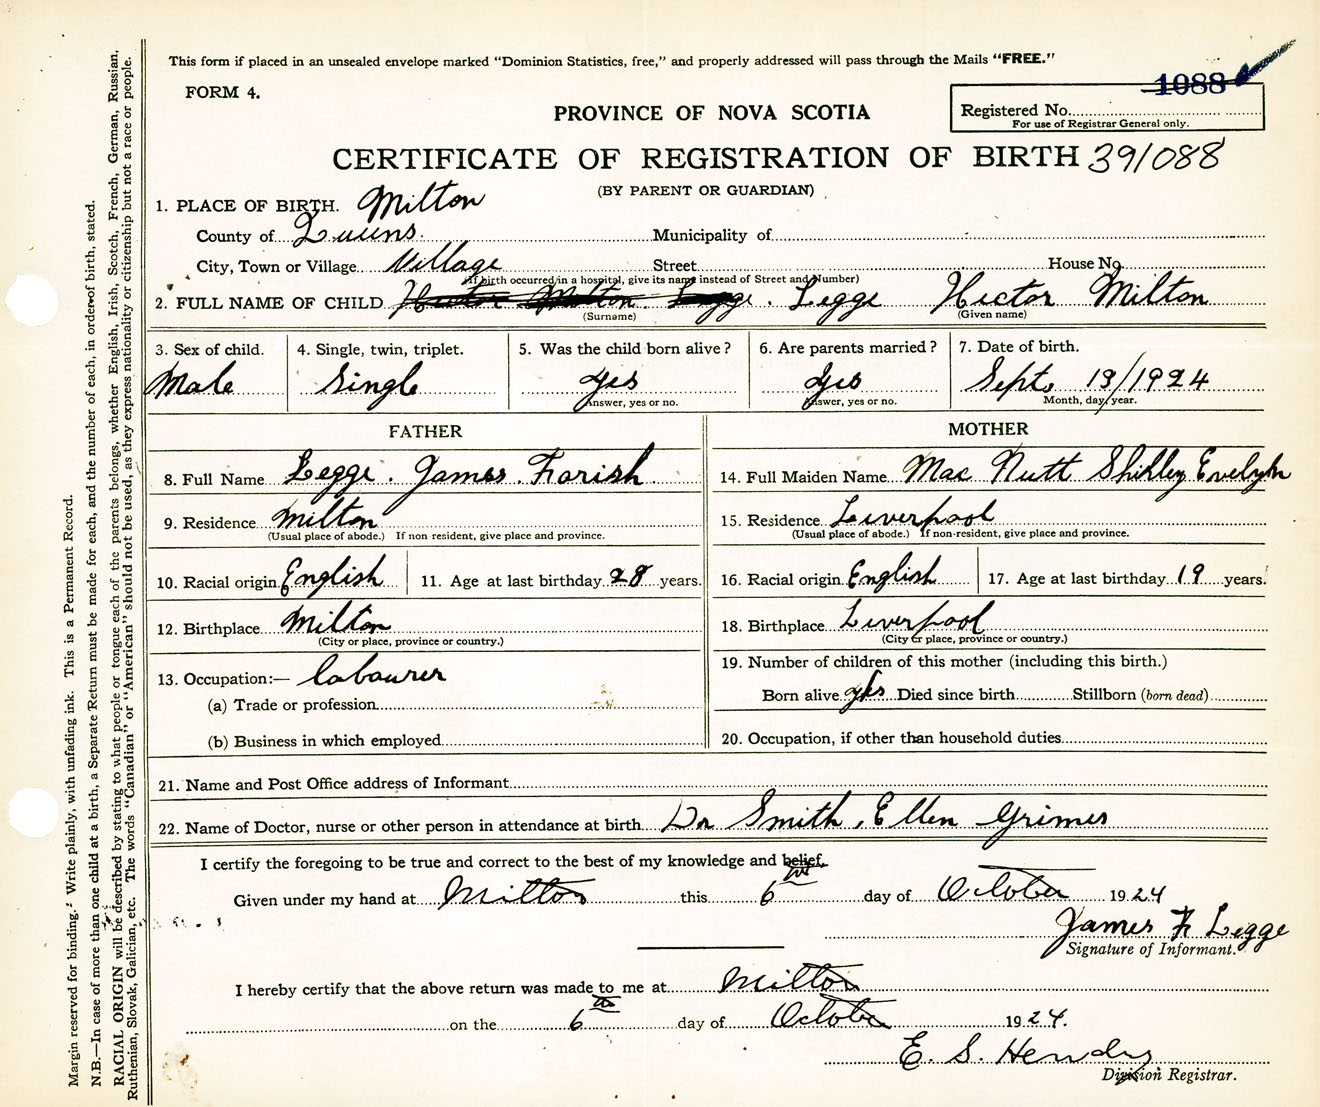 This form if placed in an unsealed envelope marked "Dominion Statistics, free," and properly addressed will pass through the Mails "FREE."
FORM 4.
1088
PROVINCE OF NOVA SCOTIA
Registered No.
For use of Registrar General only.
CERTIFICATE OF REGISTRATION OF BIRTH 391088
(BY PARENT OR GUARDIAN)
1. PLACE OF BIRTH. Milton
County of Queens. Municipality of
City, Town or Village Village Street House No.
(If birth occurred in a hospital, give its name instead of Street and Number)
2. FULL NAME OF CHILD Hector Milton Legge. Legge Hector Milton
(Surname) (Given name)
3. Sex of child. 4. Single, twin, triplet. 5. Was the child born alive? 6. Are parents married? 7. Date of birth.
Male Single yes yes Sept. 13/1924
Answer, yes or no. Answer, yes or no. Month, day, year.
FATHER MOTHER
8. Full Name Legge. James. Farish. 14. Full Maiden Name Mac Nutt Shirley Evelyn
9. Residence Milton 15. Residence Liverpool
(Usual place of abode.) If non-resident, give place and province. (Usual place of abode.) If non-resident, give place and province.
10. Racial origin English 11. Age at last birthday 28 years. 16. Racial origin English 17. Age at last birthday 19 years.
12. Birthplace Milton 18. Birthplace Liverpool
(City or place, province or country.) (City or place, province or country.)
13. Occupation:— labourer 19. Number of children of this mother (including this birth.)
(a) Trade or profession Born alive yes Died since birth Stillborn (born dead)
(b) Business in which employed 20. Occupation, if other than household duties
21. Name and Post Office address of Informant
22. Name of Doctor, nurse or other person in attendance at birth Dr Smith, Ellen Grimes
I certify the foregoing to be true and correct to the best of my knowledge and belief.
Given under my hand at Milton this 6th day of October 1924
James F Legge
Signature of Informant.
I hereby certify that the above return was made to me at Milton
on the 6th day of October 1924.
E. S. Hendry
Division Registrar.
Margin reserved for binding. Write plainly, with unfading ink. This is a Permanent Record.
N.B.—In case of more than one child at a birth, a Separate Return must be made for each, and the number of each, in order of birth, stated.
RACIAL ORIGIN will be described by stating to what people or tongue each of the parents belongs, whether English, Irish, Scotch, French, German, Russian,
Ruthenian, Slovak, Galician, etc. The words "Canadian" or "American" should not be used, as they express nationality or citizenship but not a race or people.